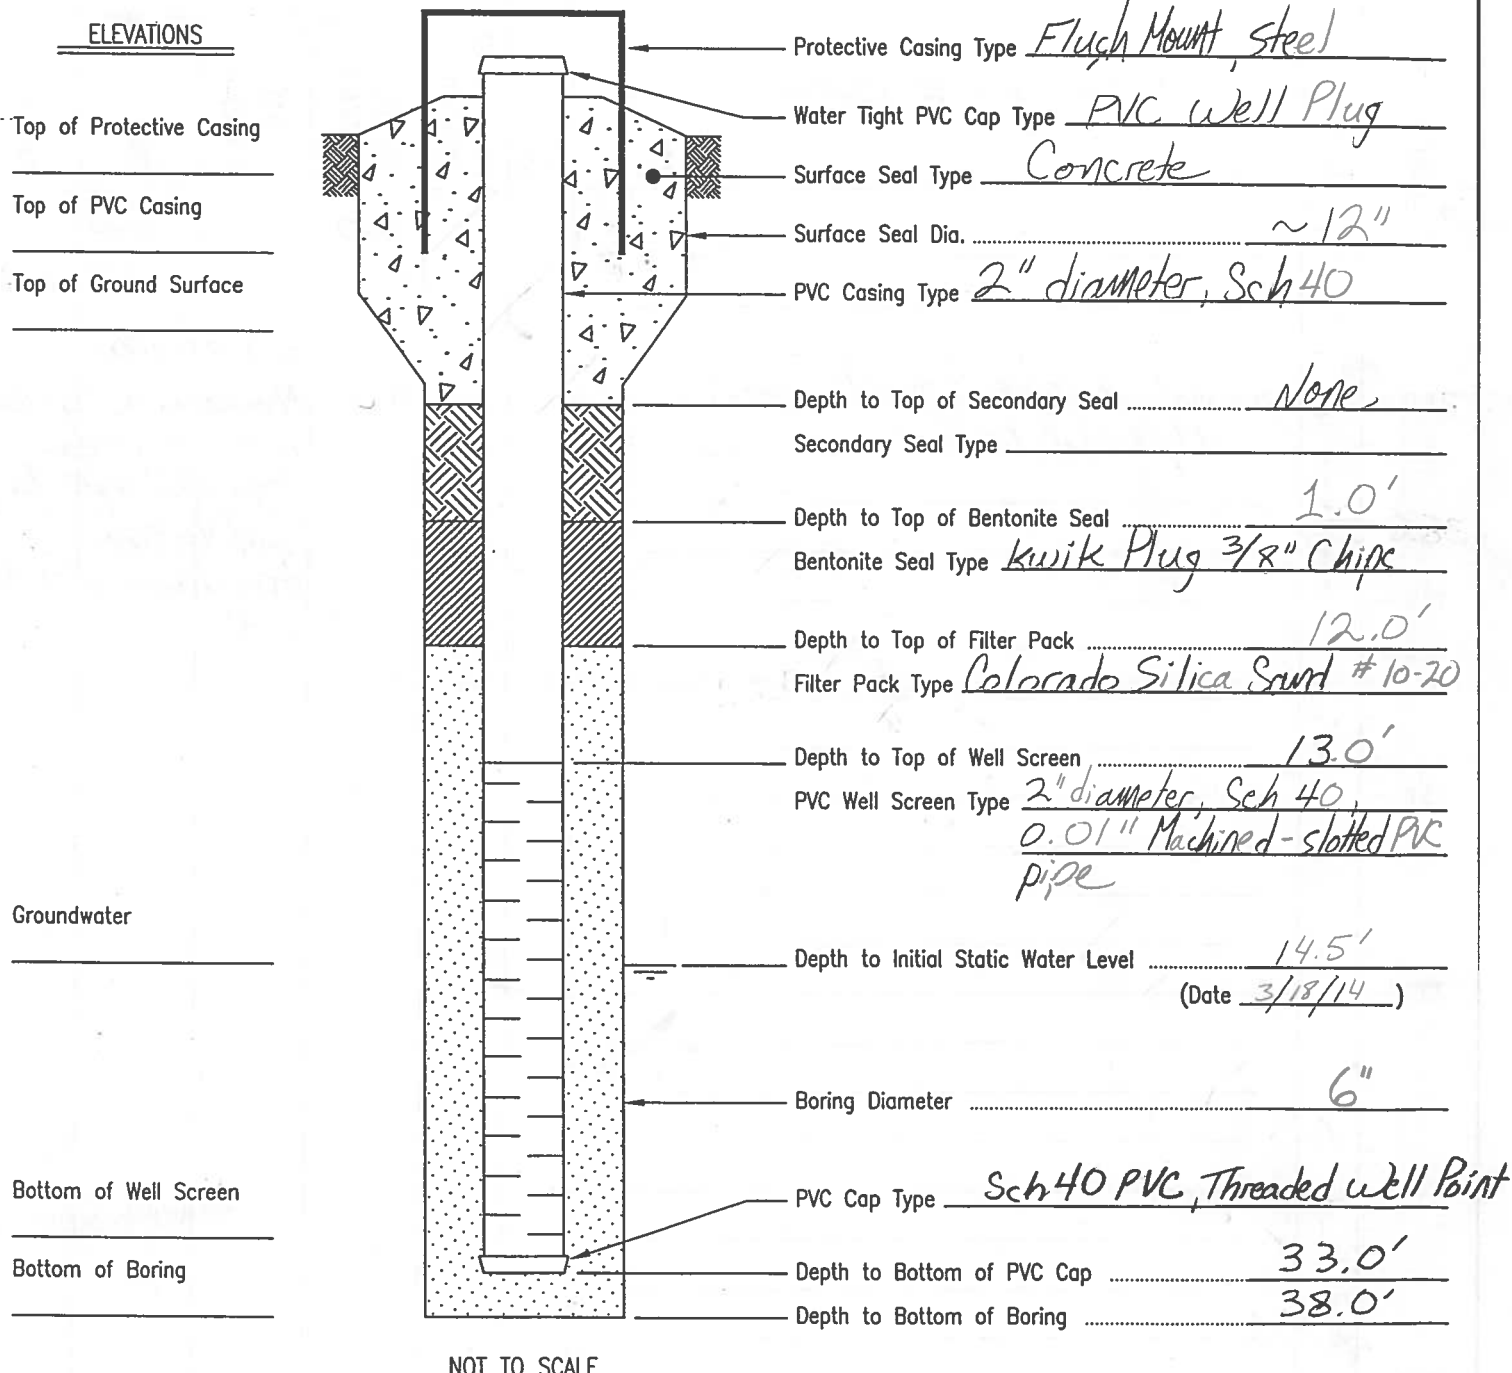 ELEVATIONS
Top of Protective Casing
Top of PVC Casing
Top of Ground Surface
Groundwater
Bottom of Well Screen
Bottom of Boring
Protective Casing Type Flush Mount, Steel
Water Tight PVC Cap Type PVC Well Plug
Surface Seal Type Concrete
Surface Seal Dia. ~12"
PVC Casing Type 2" diameter, Sch 40
Depth to Top of Secondary Seal None
Secondary Seal Type
Depth to Top of Bentonite Seal 1.0'
Bentonite Seal Type Kwik Plug 3/8" Chips
Depth to Top of Filter Pack 12.0'
Filter Pack Type Colorado Silica Sand #10-20
Depth to Top of Well Screen 13.0'
PVC Well Screen Type 2" diameter, Sch 40,
0.01" Machined-slotted PVC
pipe
Depth to Initial Static Water Level 14.5'
(Date 3/18/14)
Boring Diameter 6"
PVC Cap Type Sch 40 PVC, Threaded Well Point
Depth to Bottom of PVC Cap 33.0'
Depth to Bottom of Boring 38.0'
NOT TO SCALE